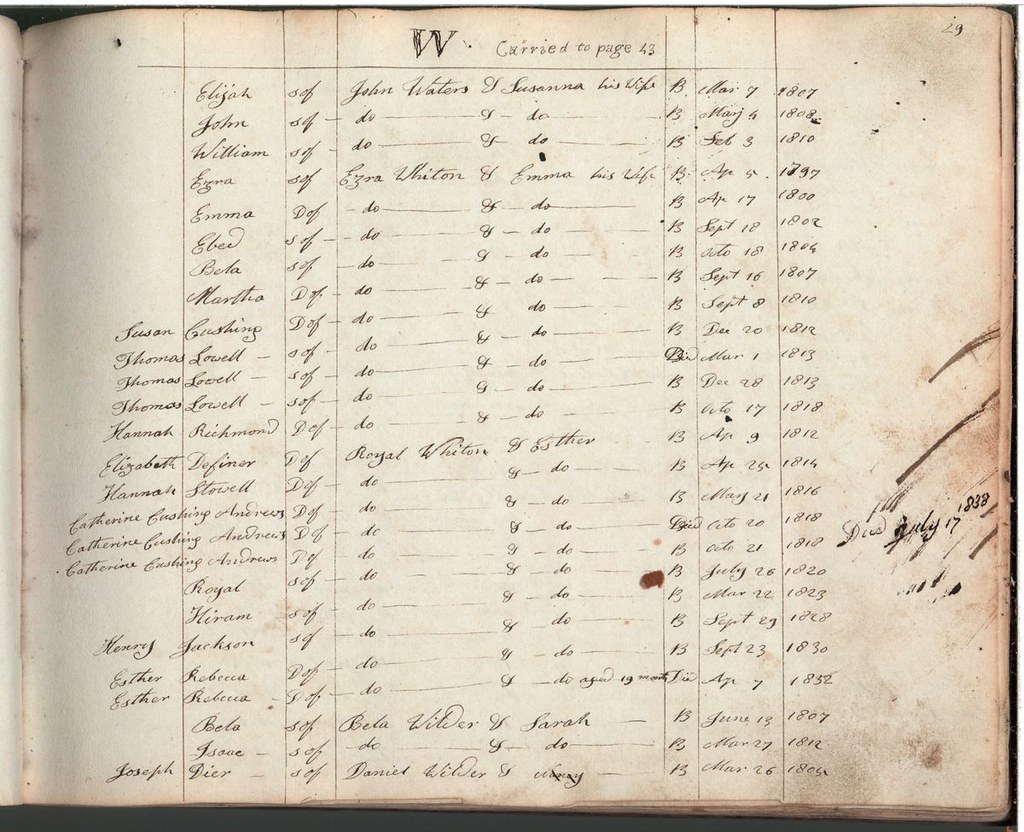 29
W. Carried to page 43
Elijah sof John Waters & Susanna his Wife B Mar 7 1807
John sof - do - & - do - B May 4 1808
William sof - do - & - do - B Feb 3 1810
Ezra sof Ezra Whiton & Emma his Wife B Ap 5 1797
Emma Dof - do - & - do - B Ap 17 1800
Ebed sof - do - & - do - B Sept 18 1802
Bela sof - do - & - do - B Octo 18 1804
Martha Dof - do - & - do - B Sept 16 1807
Susan Cushing Dof - do - & - do - B Sept 8 1810
Thomas Lowell - sof - do - & - do - B Dec 20 1812
Thomas Lowell - sof - do - & - do Died Mar 1 1813
Thomas Lowell - sof - do - & - do - B Dec 28 1813
Hannah Richmond Dof - do - & - do B Octo 17 1818
Elizabeth Definer Dof Royal Whiton & Esther B Ap 9 1812
Hannah Stowell Dof - do - & - do - B Ap 24 1814
Catherine Cushing Andrews Dof - do - & - do - B May 21 1816
Catherine Cushing Andrews Dof - do - & - do - Died Octo 20 1818
Catherine Cushing Andrews Dof - do - & - do - B Octo 21 1818 Died July 17 1838
Royal sof - do - & - do - B July 26 1820
Hiram sof - do - & - do - B Mar 22 1823
Henry Jackson sof - do - & - do - B Sept 29 1828
Esther Rebecca Dof - do - & - do - B Sept 23 1830
Esther Rebecca - Dof - do - & - do aged 19 month Died Ap 7 1832
Bela sof Bela Wilder & Sarah - B June 13 1807
Isaac - sof - do - & - do - B Mar 27 1812
Joseph Dier - sof Daniel Wilder & Nancy - B Mar 26 1804